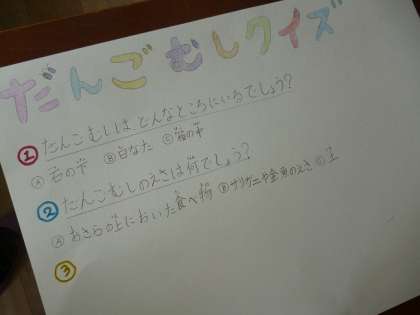 だんごむしクイズ
① だんごむしは どんなところにいるでしょう?
Ⓐ 石の下 Ⓑ 日なた Ⓒ 箱の中
② だんごむしのえさは何でしょう?
Ⓐ おさらの上においた食べ物 Ⓑ ザリガニや金魚のえさ Ⓒ 土
③